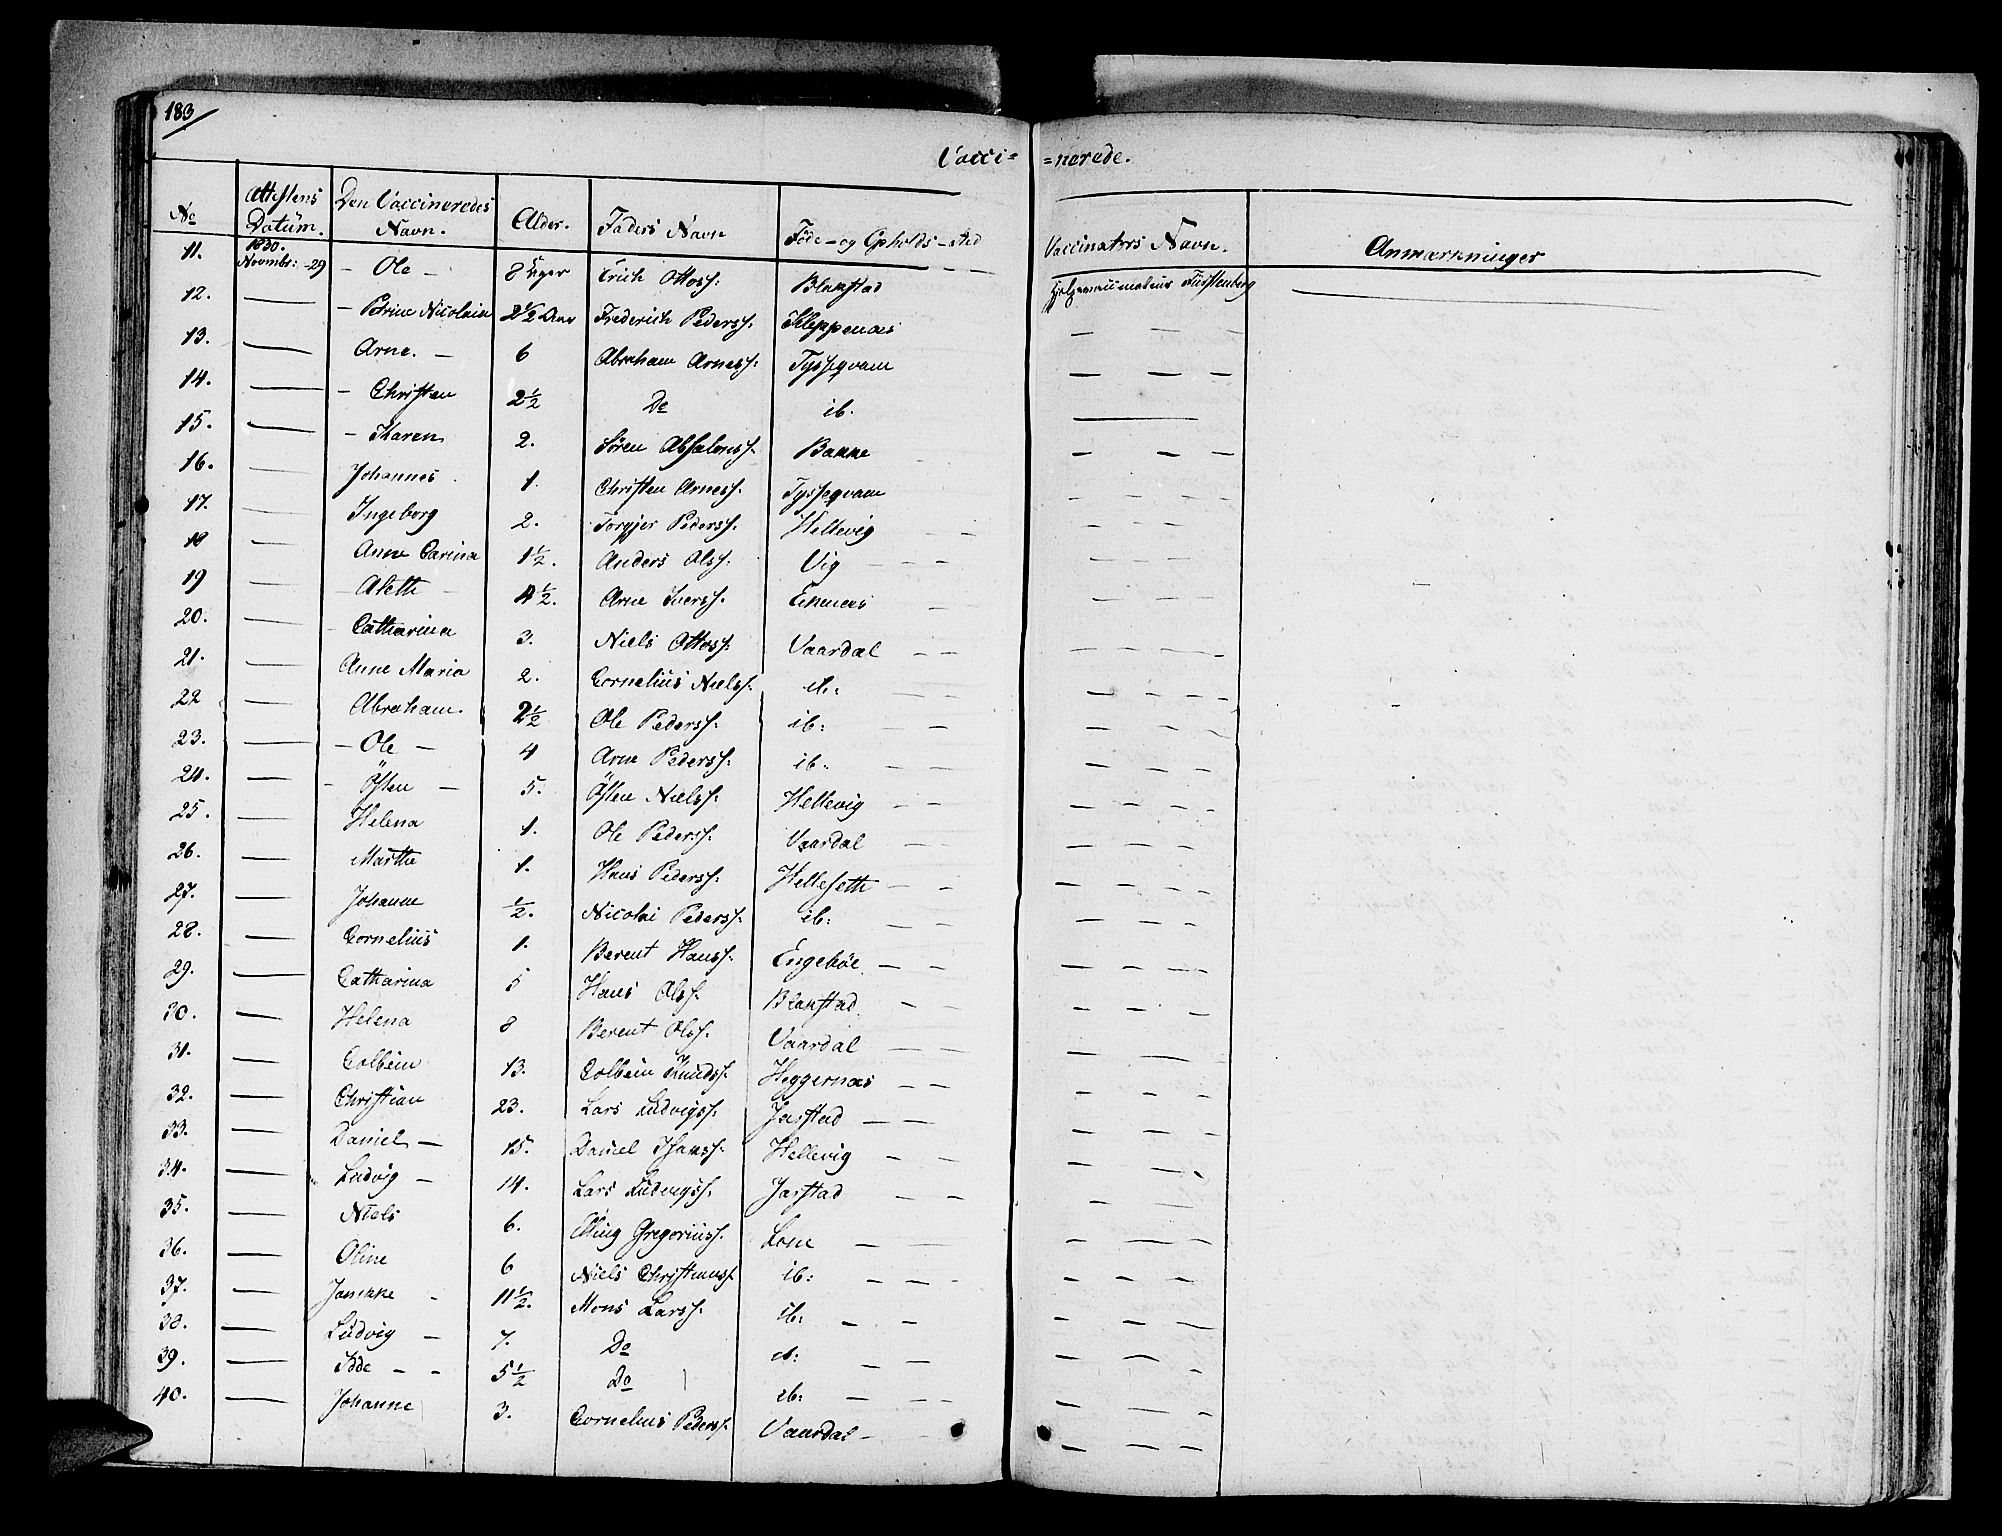 183
Vacci= =nerede.
No Attestens Datum. Den Vaccineredes Navn. Alder. Faders Navn Föde- og Opholds-sted Vaccinateurs Navn. Anmærkninger
11. 1830. Novembr: -29 - Ole - 8 Uger Erich Ottoss: Blanstad Fürstenberg
12. — - Petrine Nicolaia 2 1/2 Aar Frederich Pederss: Kleppenæs — —
13. — Arne. - 6 Abraham Arness: Tysseqvam — — —
14. — - Christen 2 1/2 Do ib. —
15. — - Karen 2. Sören Absalonss: Bakke — — —
16. — Johannes 1. Christen Arness: Tysseqvam — — —
17. — Ingeborg 2. Torgjer Pederss: Hellevig — — —
18 — Anne Carina 1 1/2. Anders Olss: Vig — — —
19 — - Alette - 4 1/2. Arne Iverss: Eknæs — — —
20. — Catharina 3. Niels Ottoss: Vaardal — — —
21. — Anne Maria 2. Cornelius Nielss: ib: — — —
22 — Abraham. 2 1/2 Ole Pederss: ib: — — —
23. — - Ole - 4 Arne Pederss: ib: — — —
24. — - Östen - 5. Östen Nielss: Hellevig — — —
25. — Helena 1. Ole Pederss: Vaardal — — —
26. — Marthe 1. Hans Pederss: Hellesetth — — —
27. — Johanne 1/2. Nicolai Pederss: ib: — — —
28. — Cornelius 1. Berent Hanss: Engeböe — — —
29. — Catharina 5 Hans Olss: Blanstad — — —
30. — Helena 8 Berent Olss: Vaardal — — —
31. — Colbein 13. Colbein Knudss: Heggernæs — — —
32. — Christian 23. Lars Ludvigss: Jarstad — — —
33. — Daniel - 15. Daniel Hanss: Hellevig — — —
34. — Ludvig - 14. Lars Ludvigss: Jarstad — — —
35. — Niels 6. Elling Gregoriuss: Lone — — —
36. — Oline 6 Niels Christianss: ib: — — —
37. — Janikke - 11 1/2. Mons Larss: ib: — — —
38. — Ludvig - 7. Do ib: — — —
39. — Idde - - 5 1/2 Do ib: — — —
40. — Johanne 3. Cornelius Pederss: Vaardal - — — —